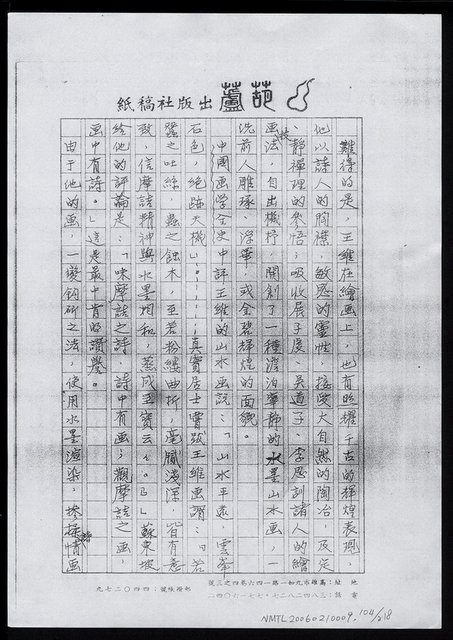 紙稿社版出 蘆葩
難得的是，王維在繪畫上，也有照耀千古的輝煌表現，
他以詩人的胸襟，敏感的靈性，接受大自然的陶冶，及定
、靜禪理的參悟；吸收展子虔、吳道子、李思訓諸人的繪
画技法，自出機抒，開創了一種淡泊寧靜的水墨山水画，一
洗前人雕琢、浮華，或金碧輝煌的面貌。
中國画学全史中評王維的山水画說：「山水平遠，雲峯
石色，絕跡天機」。……真實居士實跋王維画謂：「若
蠶之吐絲，蟲之蝕木，至若粉縷曲折，毫膩淺深，皆有意
致，信摩詰精神與水墨相和，蒸成至寶云々。」蘇東坡
給他的評論是：「味摩詰之詩，詩中有画；觀摩詰之画，
画中有詩。」這是最中肯的讚譽。
由于他的画，一變鈎斫之法，使用水墨渲染，抒情画
地址：高雄市九和一路一四六巷四之三號
電話：三八四二八二七・七七一六〇四二
郵撥帳號：四四〇二七九
NMTL20060210009. 104/218